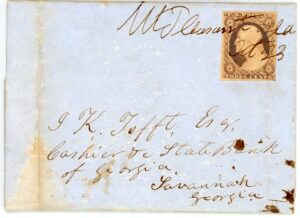 Mt Pleasant
THREE CENTS
I K. Tefft. Esq.
Cashier &c State Bank
of Georgia.
Savannah
Georgia